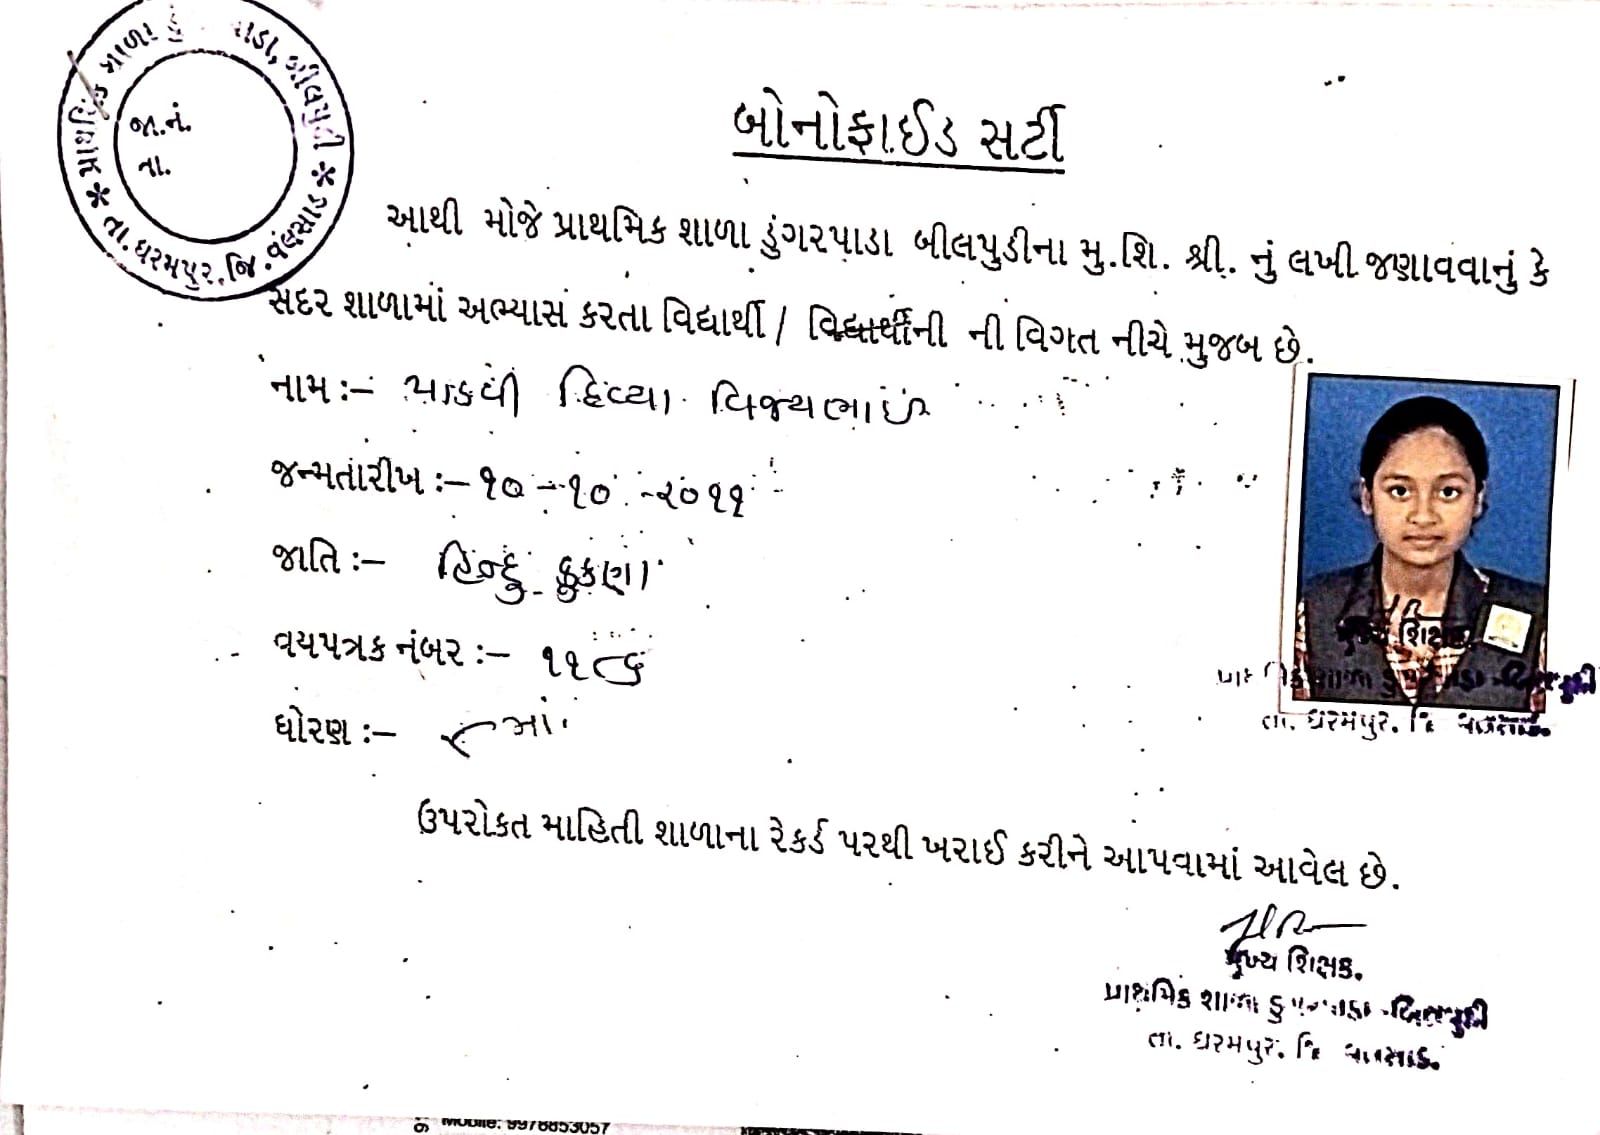 પ્રાથમિક શાળા ડું રપાડા, બીલપુડી * તા. ધરમપુર, જિ. વલસાડ *
જા.નં.
તા.
બોનોફાઈડ સર્ટી
આથી મોજે પ્રાથમિક શાળા ડુંગરપાડા બીલપુડીના મુ.શિ. શ્રી. નું લખી જણાવવાનું કે
સદર શાળામાં અભ્યાસ કરતા વિદ્યાર્થી / વિદ્યાર્થીની ની વિગત નીચે મુજબ છે.
નામ :– પાડવી દિવ્યા વિજયભાઈ
જન્મતારીખ :– ૧૦ – ૧૦ - ૨૦૧૧
જાતિ :– હિન્દુ કુકણા
વયપત્રક નંબર :– ૧૧૮૬
ધોરણ :– ૮ માં
મુખ્ય શિક્ષક
તા. ધરમપુર. જિ વલસાડ.
ઉપરોકત માહિતી શાળાના રેકર્ડ પરથી ખરાઈ કરીને આપવામાં આવેલ છે.
મુખ્ય શિક્ષક.
પ્રાથમિક શાળા ડુંગરપાડા - બિલપુડી
તા. ધરમપુર. જિ વલસાડ.
Mobile: 9978853057